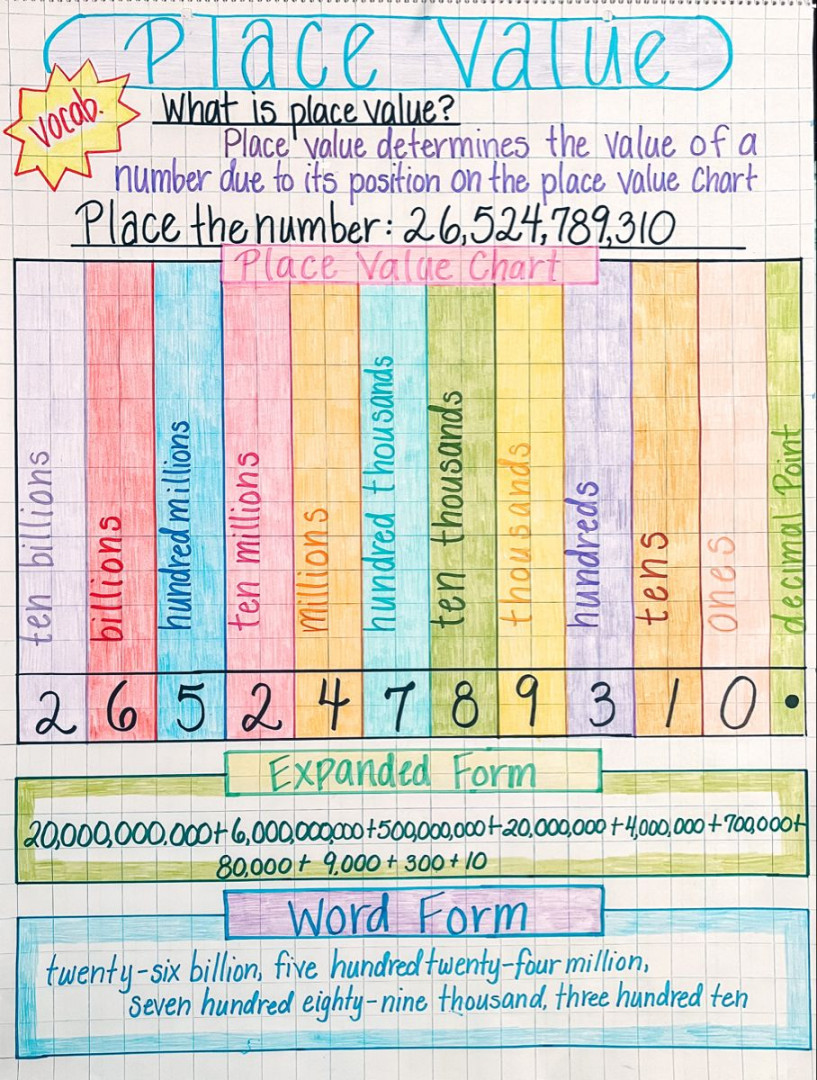 Place Value
vocab.
What is place value?
Place value determines the value of a
number due to its position on the place value chart
Place the number: 26,524,789,310
Place Value Chart
ten billions
billions
hundred millions
ten millions
millions
hundred thousands
ten thousands
thousands
hundreds
tens
ones
decimal Point
2 6 5 2 4 7 8 9 3 1 0 .
Expanded Form
20,000,000.000+6,000,000,000+500,000,000+20,000,000+4,000,000+700,000+
80,000+ 9,000+ 300+10
Word Form
twenty-six billion, five hundred twenty-four million,
seven hundred eighty-nine thousand, three hundred ten